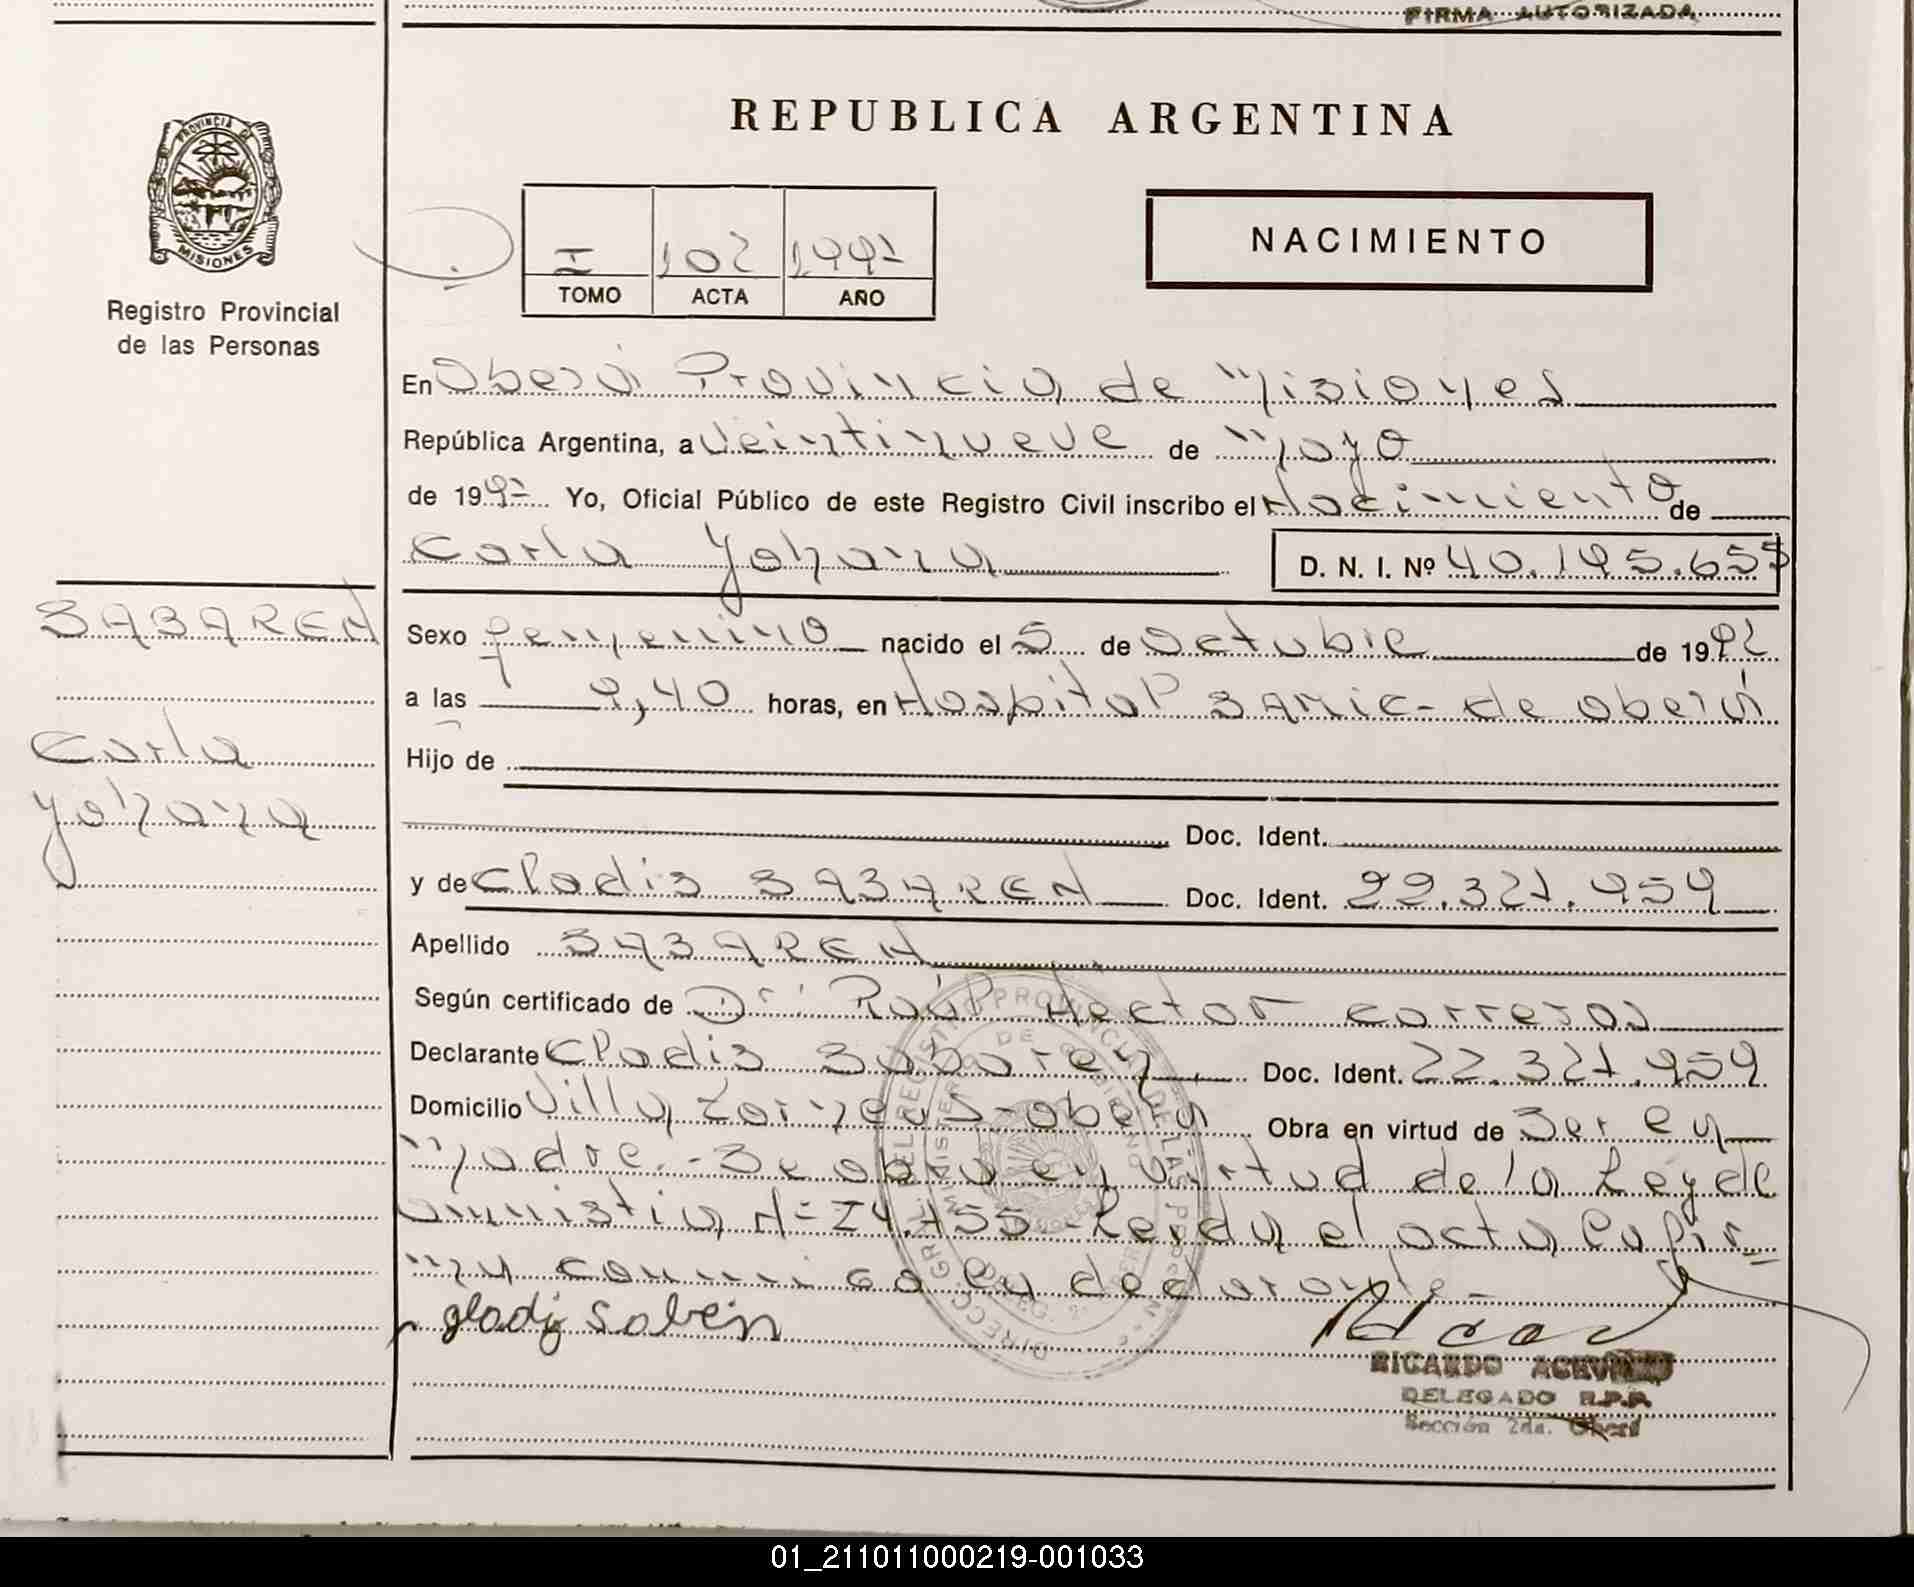 FIRMA AUTORIZADA
REPUBLICA ARGENTINA
PROVINCIA DE MISIONES
Registro Provincial
de las Personas
I 102 1997
TOMO ACTA AÑO
NACIMIENTO
En Oberá Provincia de Misiones
República Argentina, a veintinueve de Mayo
de 1997 Yo, Oficial Público de este Registro Civil inscribo el Nacimiento de
Carla Yohana D. N. I. Nº 40.195.655
SABAREN
Sexo femenino nacido el 5 de Octubre de 1992
a las 9,40 horas, en Hospital SAMIC - de Oberá
Carla
Yohana
Hijo de
Doc. Ident.
y de Gladis SABAREN Doc. Ident. 22.327.959
Apellido SABAREN
Según certificado de Dr. Raúl Hector
Declarante Gladis Sabaren Doc. Ident. 22.327.959
Domicilio Villa Oberá Obra en virtud de Ser en
Madre.- Se obra en virtud de la Ley de
amnistia Nº 24.755 - Leida el acta la fir-
ma conmigo la declarante -
RICARDO ACEVEDO
DELEGADO R.P.P.
Sección 2da. Oberá
01_211011000219-001033